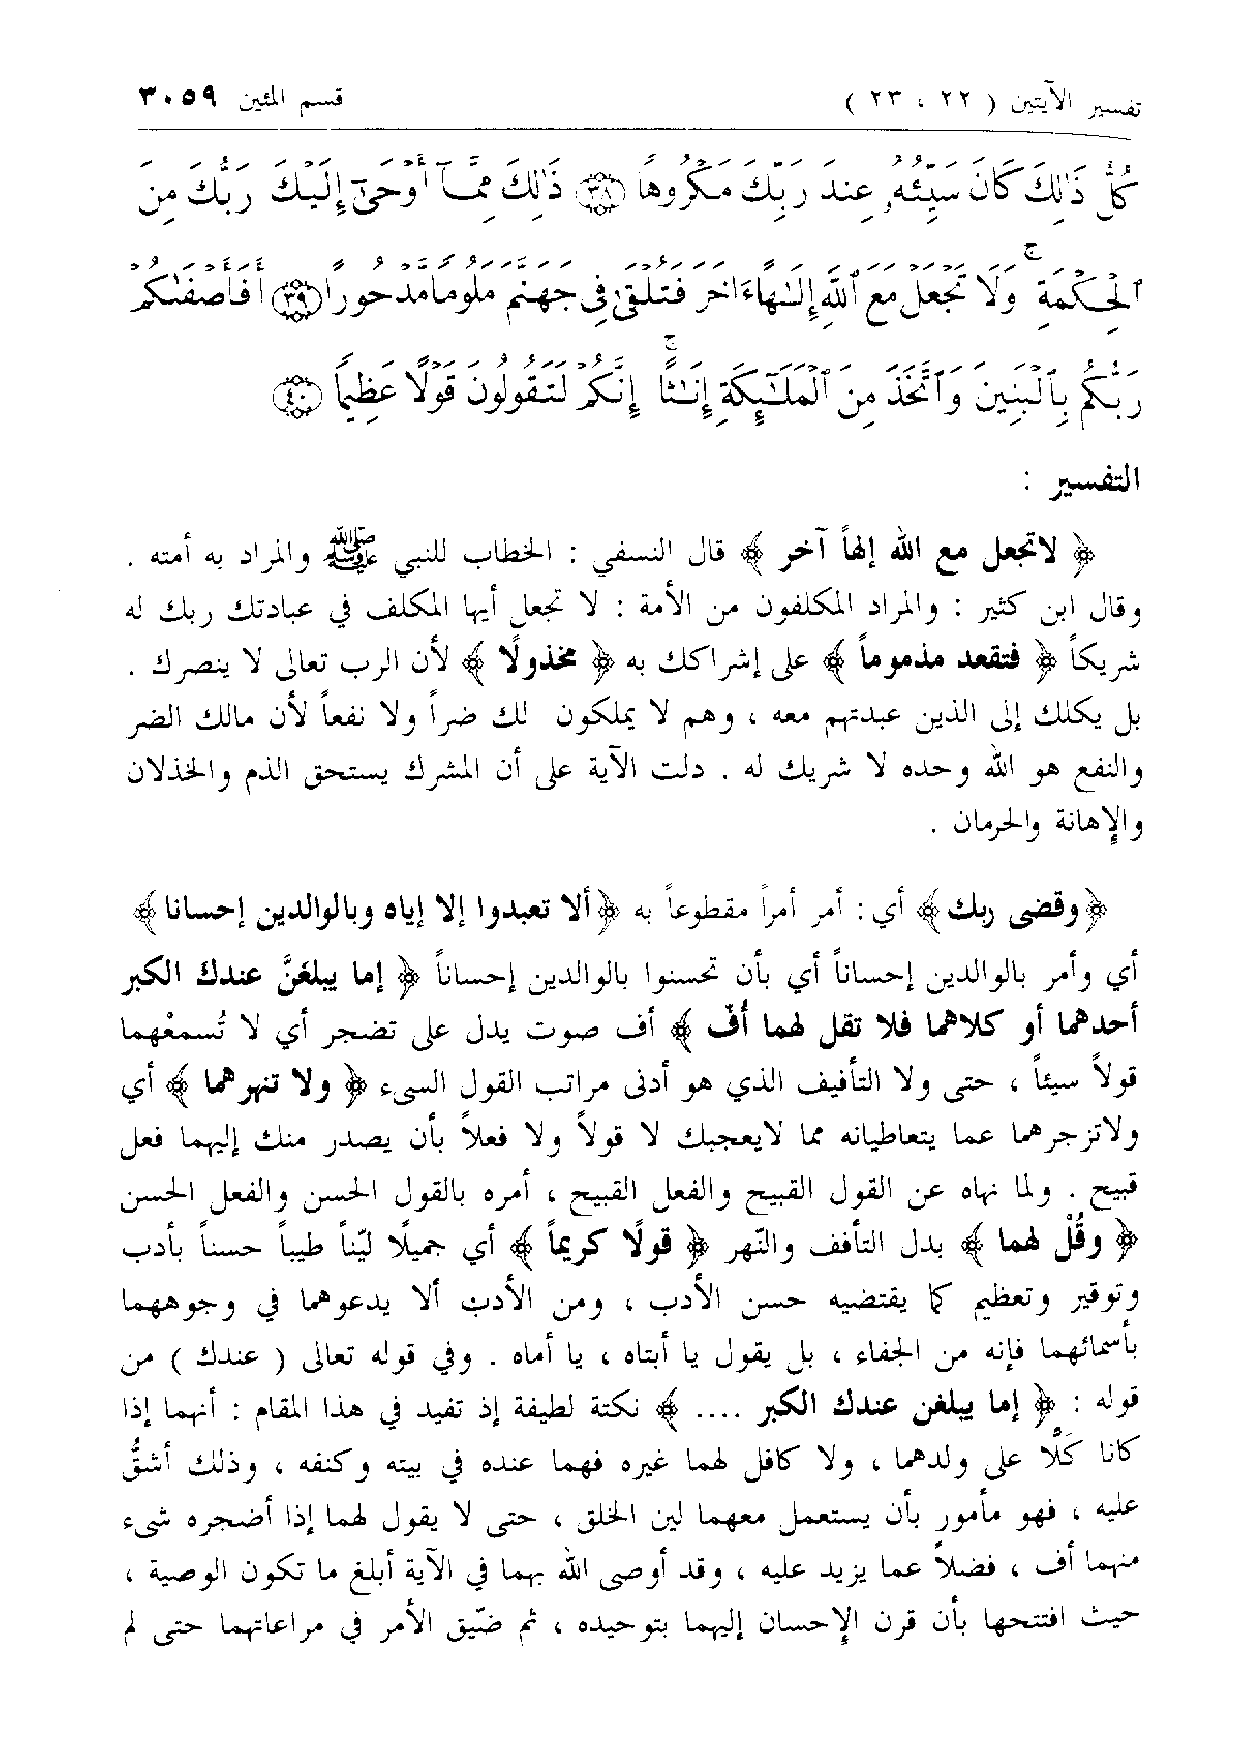 تفسير الآيتين ( ٢٢ ، ٢٣ ) قسم المئين ٣٠٥٩
كُلُّ ذَٰلِكَ كَانَ سَيِّئُهُۥ عِندَ رَبِّكَ مَكْرُوهًا ﴿٣٨﴾ ذَٰلِكَ مِمَّآ أَوْحَىٰٓ إِلَيْكَ رَبُّكَ مِنَ
ٱلْحِكْمَةِ ۗ وَلَا تَجْعَلْ مَعَ ٱللَّهِ إِلَٰهًا ءَاخَرَ فَتُلْقَىٰ فِى جَهَنَّمَ مَلُومًا مَّدْحُورًا ﴿٣٩﴾ أَفَأَصْفَىٰكُمْ
رَبُّكُم بِٱلْبَنِينَ وَٱتَّخَذَ مِنَ ٱلْمَلَٰٓئِكَةِ إِنَٰثًا ۚ إِنَّكُمْ لَتَقُولُونَ قَوْلًا عَظِيمًا ﴿٤٠﴾
التفسير :
﴿ لاتجعل مع الله إلهاً آخر ﴾ قال النسفي : الخطاب للنبي ﷺ والمراد به أمته .
وقال ابن كثير : والمراد المكلفون من الأمة : لا تجعل أيها المكلف في عبادتك ربك له
شريكاً ﴿ فتقعد مذموماً ﴾ على إشراكك به ﴿ مخذولًا ﴾ لأن الرب تعالى لا ينصرك .
بل يكلك إلى الذين عبدتهم معه ، وهم لا يملكون لك ضراً ولا نفعاً لأن مالك الضر
والنفع هو الله وحده لا شريك له . دلت الآية على أن المشرك يستحق الذم والخذلان
والإهانة والحرمان .
﴿وقضى ربك﴾ أي: أمر أمراً مقطوعاً به ﴿ألا تعبدوا إلا إياه وبالوالدين إحسانا﴾
أي وأمر بالوالدين إحساناً أي بأن تحسنوا بالوالدين إحساناً ﴿ إما يبلغَنَّ عندك الكبر
أحدهما أو كلاهما فلا تقل لهما أُفّ ﴾ أف صوت يدل على تضجر أي لا تُسمعْهما
قولاً سيئاً ، حتى ولا التأفيف الذي هو أدنى مراتب القول السىء ﴿ ولا تنهرهما ﴾ أي
ولاتزجرهما عما يتعاطيانه مما لايعجبك لا قولاً ولا فعلاً بأن يصدر منك إليهما فعل
قبيح . ولما نهاه عن القول القبيح والفعل القبيح ، أمره بالقول الحسن والفعل الحسن
﴿ وقُلْ لهما ﴾ بدل التأفف والنّهر ﴿ قولًا كريماً ﴾ أي جميلًا ليّناً طيباً حسناً بأدب
وتوقير وتعظيم كما يقتضيه حسن الأدب ، ومن الأدب ألا يدعوهما في وجوههما
بأسمائهما فإنه من الجفاء ، بل يقول يا أبتاه ، يا أماه . وفي قوله تعالى ( عندك ) من
قوله : ﴿ إما يبلغن عندك الكبر .... ﴾ نكتة لطيفة إذ تفيد في هذا المقام : أنهما إذا
كانا كَلًّا على ولدهما ، ولا كافل لهما غيره فهما عنده في بيته وكنفه ، وذلك أشقُّ
عليه ، فهو مأمور بأن يستعمل معهما لين الخلق ، حتى لا يقول لهما إذا أضجره شىء
منهما أف ، فضلاً عما يزيد عليه ، وقد أوصى الله بهما في الآية أبلغ ما تكون الوصية ،
حيث افتتحها بأن قرن الإحسان إليهما بتوحيده ، ثم ضيّق الأمر في مراعاتهما حتى لم